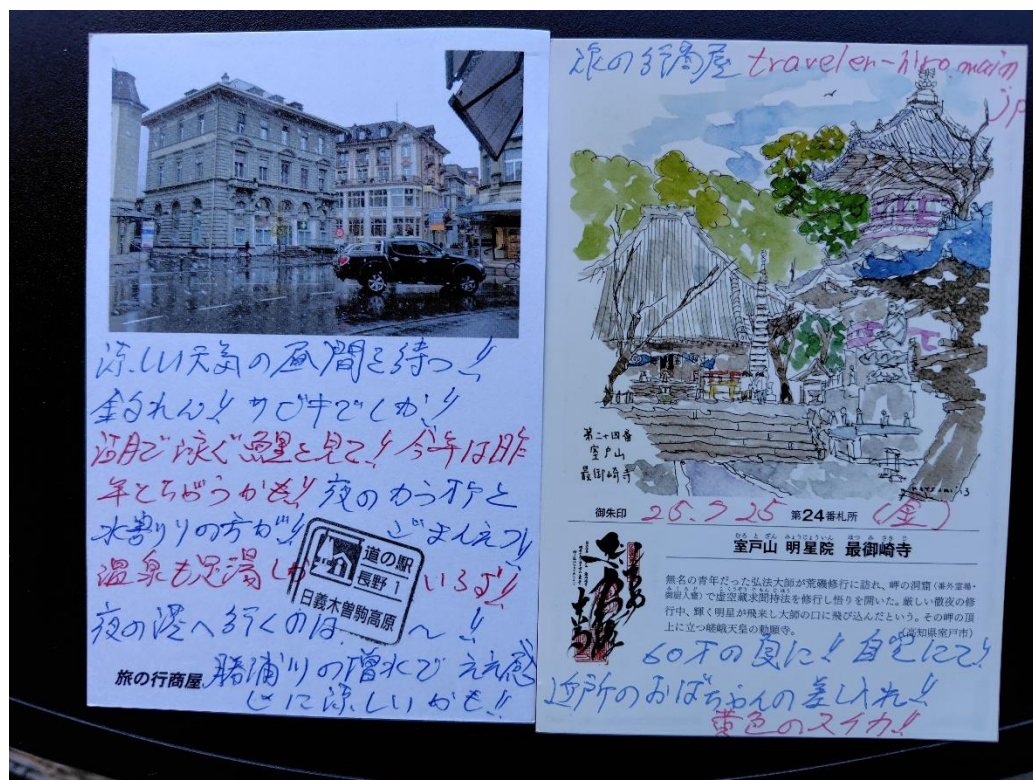 涼しい天気の昼間を待つ!!
釣れん!! サビキでしか!!
海月で泳ぐ鯉を見て!! 今年は昨
年とちがうかも!! 夜のカラオケと
水割りの方が!!
温泉も足湯し いるず!!
道の駅
長野 1
日義木曽駒高原
夜の港へ行くのは ん!!
旅の行商屋
勝浦川の増水で ええ感
じに涼しいかも!!
旅の行商屋 traveler-hiro.main
jp
第二十四番
室戸山
最御崎寺
御朱印 25.7 25 第24番札所 (金)
ひろと ざん みょうじょういん ほつ み さき じ
室戸山 明星院 最御崎寺
無名の青年だった弘法大師が荒磯修行に訪れ、岬の洞窟(番外霊場・
御厨人窟)で虚空蔵求聞持法を修行し悟りを開いた。厳しい徹夜の修
行中、輝く明星が飛来し大師の口に飛び込んだという。その岬の頂
上に立つ嵯峨天皇の勅願寺。
(高知県室戸市)
60才の夏に!! 自宅にて!!
近所のおばちゃんの差し入れ!!
黄色のスイカ!!